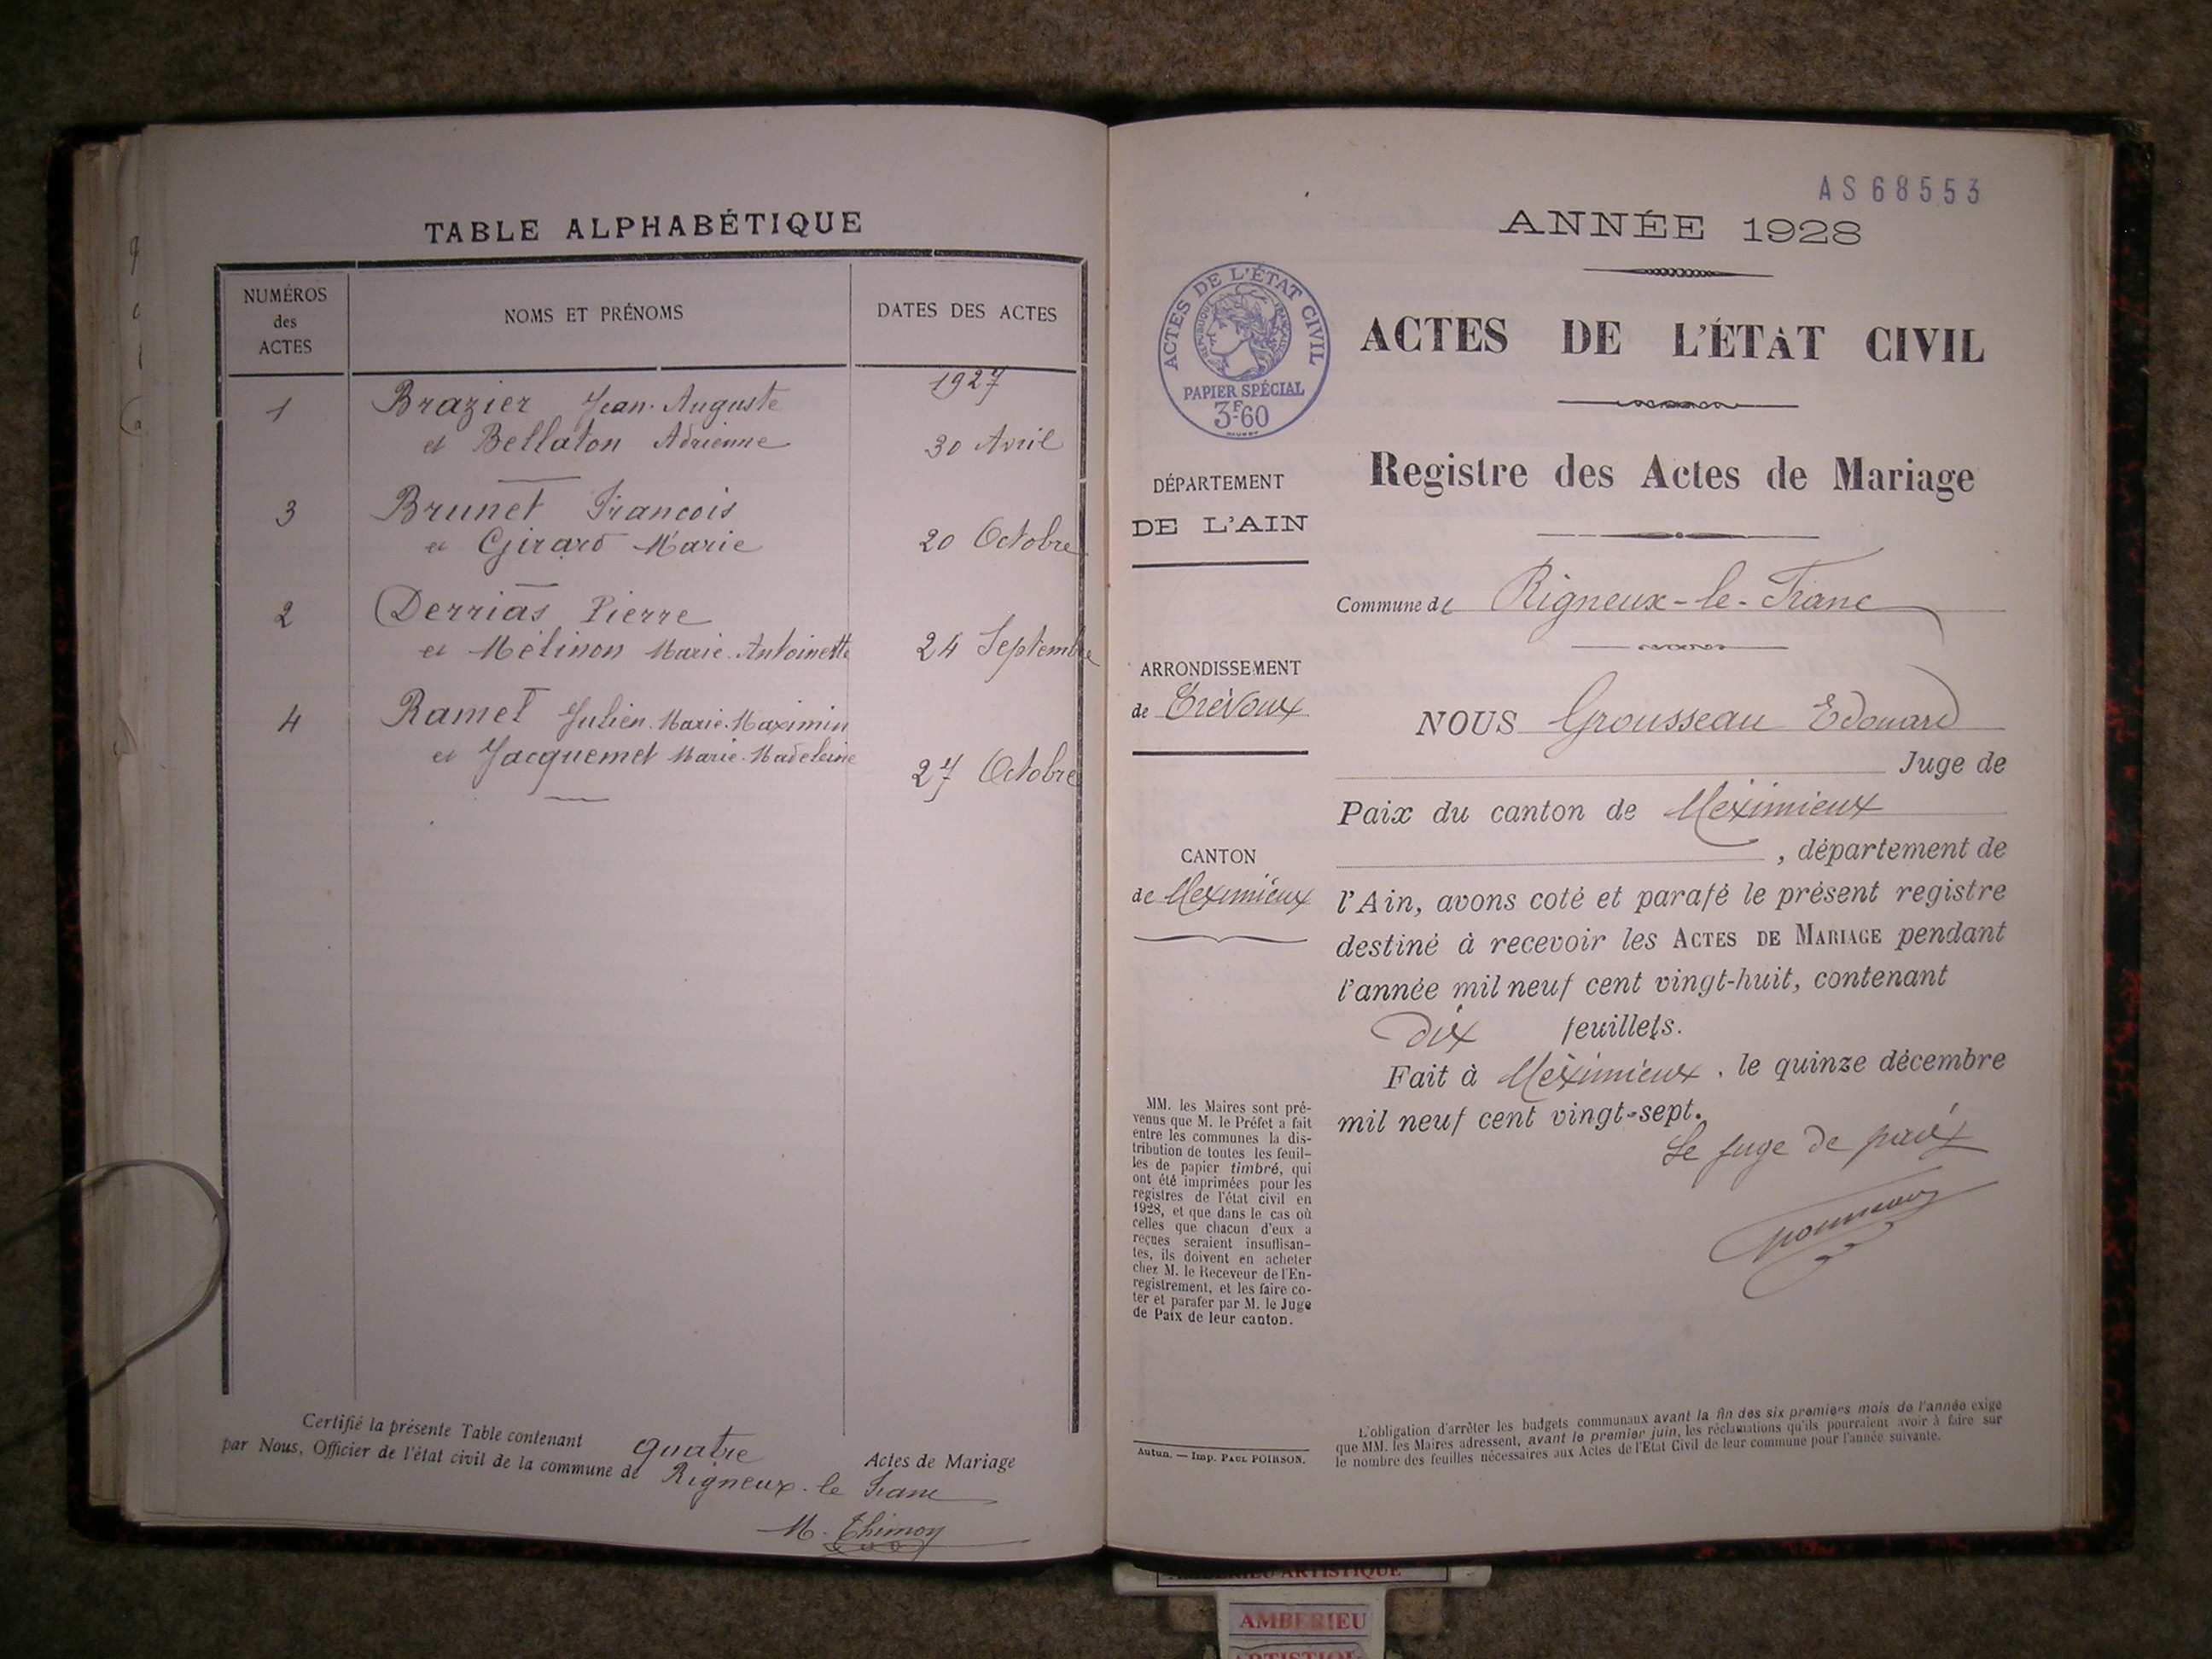 TABLE ALPHABÉTIQUE
NUMÉROS
des
ACTES
NOMS ET PRÉNOMS
DATES DES ACTES
1927
1
Brazier Jean-Auguste
et Bellaton Adrienne
30 Avril
3
Brunet Francois
et Girard Marie
20 Octobre
2
Derrias Pierre
et Mélinon Marie-Antoinette
24 Septembre
4
Ramet Julien-Marie-Maximin
et Jacquemet Marie-Madeleine
27 Octobre
Certifié la présente Table contenant quatre Actes de Mariage
par Nous, Officier de l'état civil de la commune de Rigneux-le Franc
M. Thimon
AS68553
ANNÉE 1928
ACTES DE L'ÉTAT CIVIL
RÉPUBLIQUE FRANÇAISE
PAPIER SPÉCIAL
3F60
ACTES DE L'ÉTAT CIVIL
Registre des Actes de Mariage
DÉPARTEMENT
DE L'AIN
Commune de Rigneux-le-Franc
ARRONDISSEMENT
de Trévoux
NOUS Grousseau Edouard
Juge de
Paix du canton de Meximieux
, département de
CANTON
de Meximieux
l'Ain, avons coté et parafé le présent registre
destiné à recevoir les ACTES DE MARIAGE pendant
l'année mil neuf cent vingt-huit, contenant
Dix feuillets.
Fait à Meximieux, le quinze décembre
mil neuf cent vingt-sept.
Le juge de paix
MM. les Maires sont pré-
venus que M. le Préfet a fait
entre les communes la dis-
tribution de toutes les feuil-
les de papier timbré, qui
ont été imprimées pour les
registres de l'état civil en
1928, et que dans le cas où
celles que chacun d'eux a
reçues seraient insuffisan-
tes, ils doivent en acheter
chez M. le Receveur de l'En-
registrement, et les faire co-
ter et parafer par M. le Juge
de Paix de leur canton.
Autun. — Imp. PAUL POIRSON.
L'obligation d'arrêter les budgets communaux avant la fin des six premiers mois de l'année exige
que MM. les Maires adressent, avant le premier juin, les réclamations qu'ils pourraient avoir à faire sur
le nombre des feuilles nécessaires aux Actes de l'Etat Civil de leur commune pour l'année suivante.
ARTISTIQUE
AMBERIEU